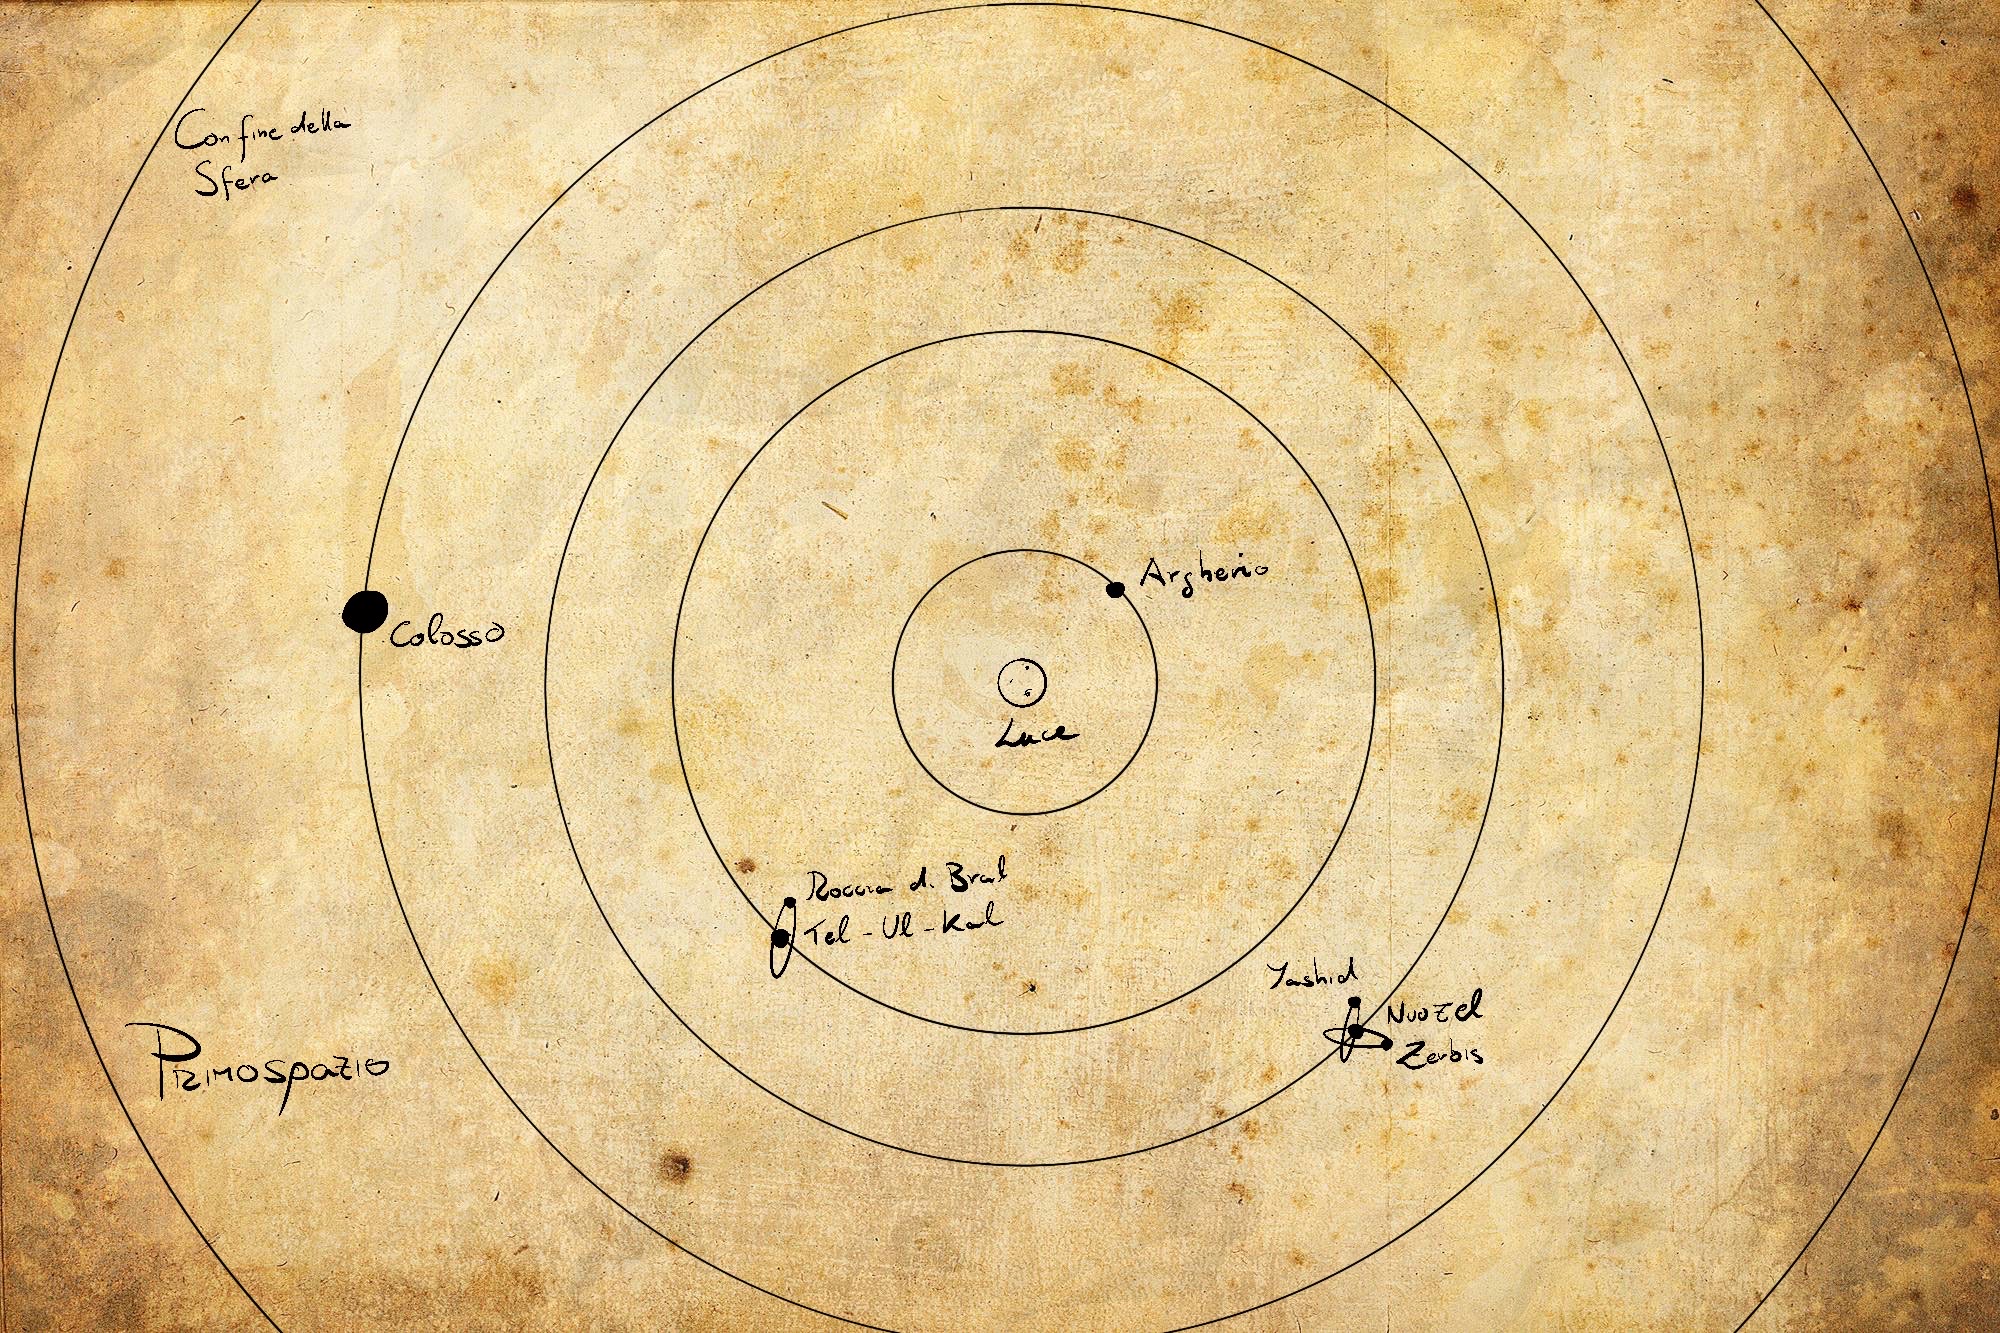 Confine della
Sfera
Argherio
Colosso
Luce
Roccia di Bral
Tel-Ul-Kal
Yashid
Nuozel
Zerbis
Primospazio